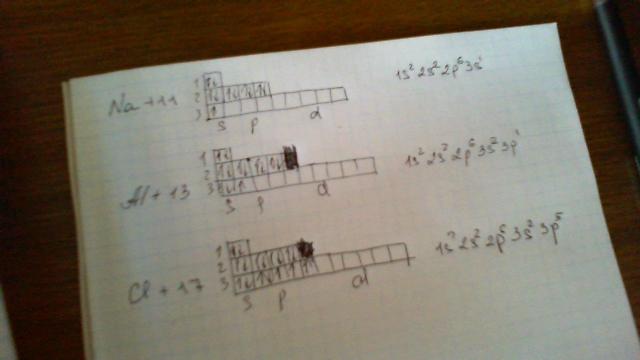 Na +11
1
2
3
s p d
1s² 2s² 2p⁶ 3s¹
Al + 13
1
2
3
s p d
1s² 2s² 2p⁶ 3s² 3p¹
Cl + 17
1
2
3
s p d
1s² 2s² 2p⁶ 3s² 3p⁵